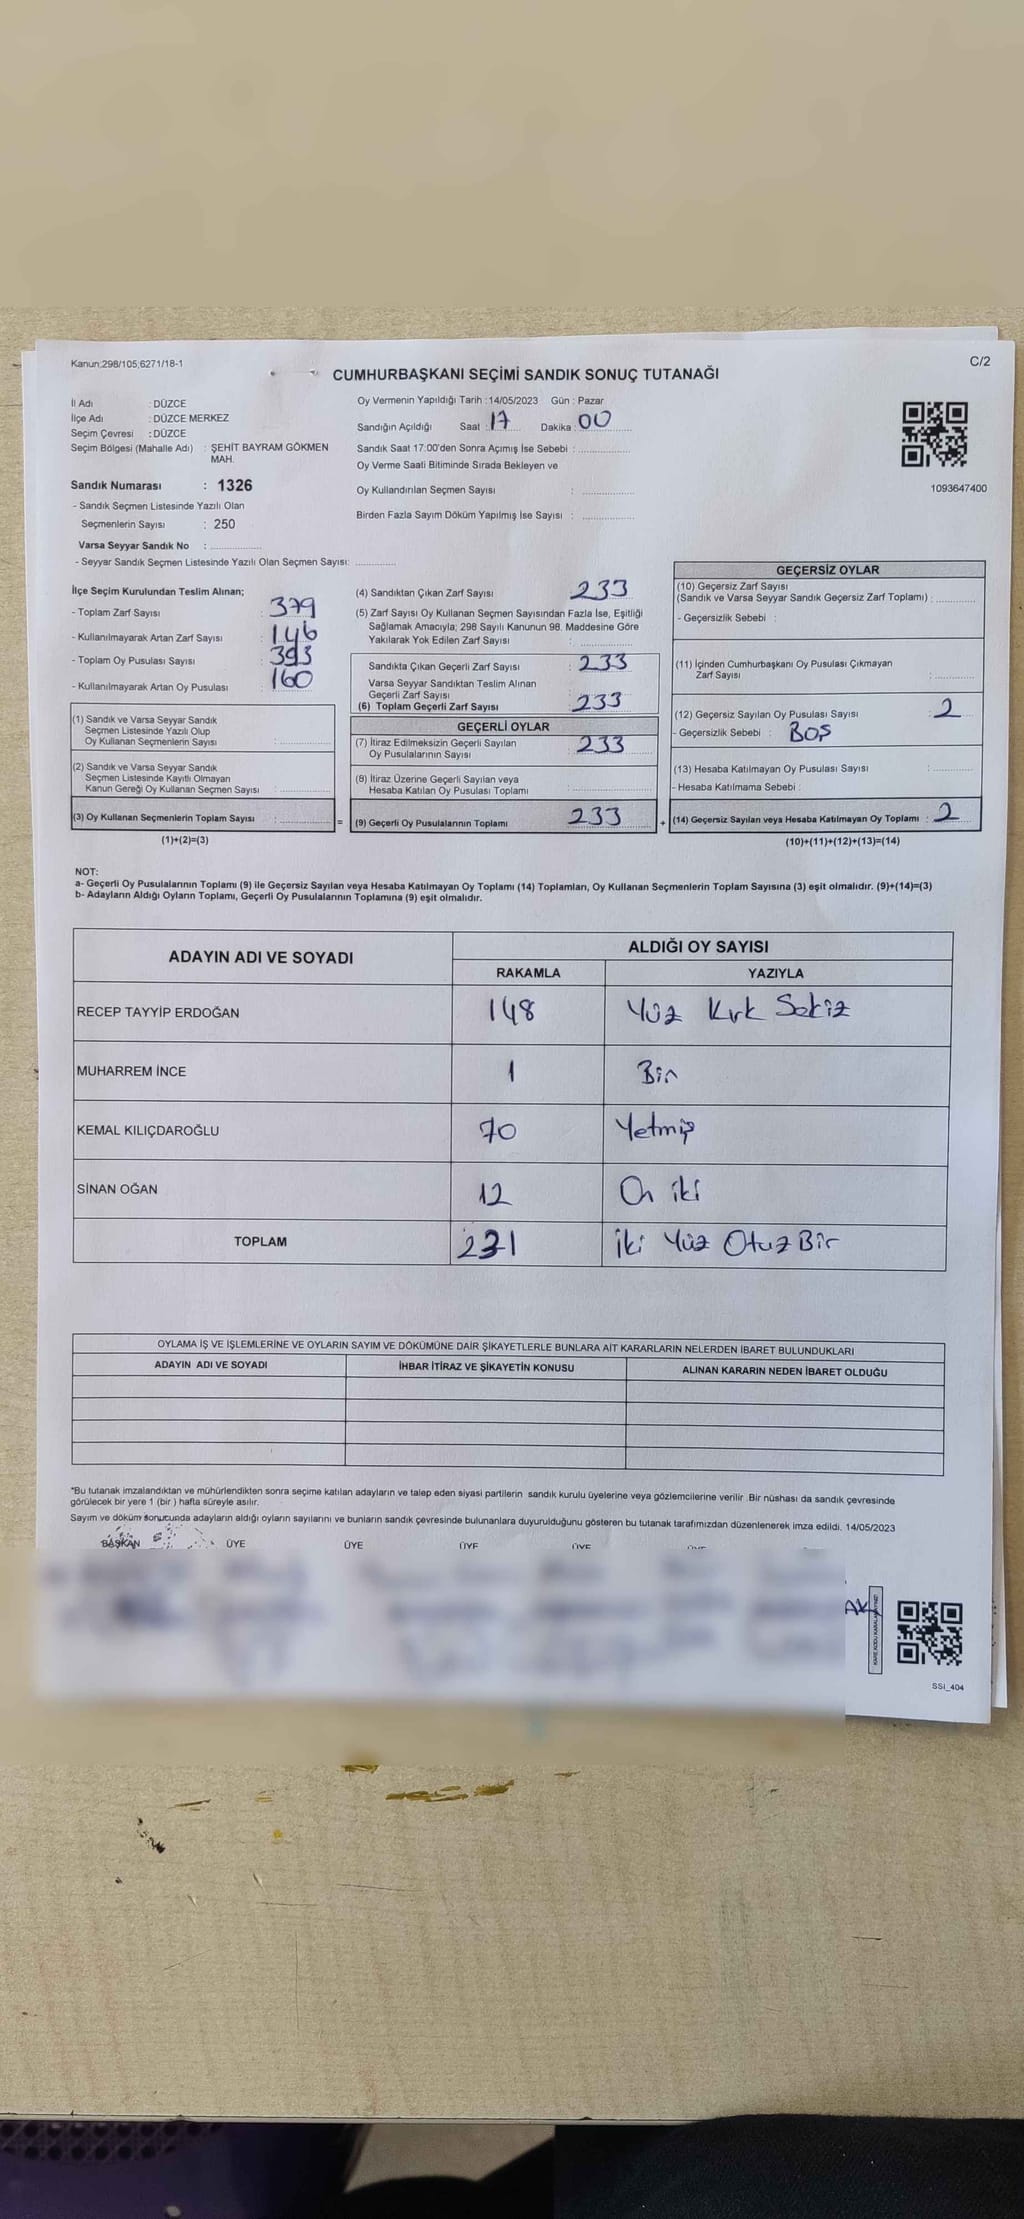 Kanun;298/105,6271/18-1
C/2
CUMHURBAŞKANI SEÇİMİ SANDIK SONUÇ TUTANAĞI
İl Adı : DÜZCE
İlçe Adı : DÜZCE MERKEZ
Seçim Çevresi : DÜZCE
Seçim Bölgesi (Mahalle Adı) : ŞEHİT BAYRAM GÖKMEN
MAH.
Sandık Numarası : 1326
- Sandık Seçmen Listesinde Yazılı Olan
Seçmenlerin Sayısı : 250
Varsa Seyyar Sandık No : ..................
- Seyyar Sandık Seçmen Listesinde Yazılı Olan Seçmen Sayısı: ..............
Oy Vermenin Yapıldığı Tarih :14/05/2023 Gün : Pazar
Sandığın Açıldığı Saat : 17 Dakika : 00
Sandık Saat 17:00'den Sonra Açımış İse Sebebi : ..................
Oy Verme Saati Bitiminde Sırada Bekleyen ve
Oy Kullandırılan Seçmen Sayısı : ..................
Birden Fazla Sayım Döküm Yapılmış İse Sayısı : ..................
1093647400
İlçe Seçim Kurulundan Teslim Alınan;
- Toplam Zarf Sayısı : 379
- Kullanılmayarak Artan Zarf Sayısı : 146
- Toplam Oy Pusulası Sayısı : 393
- Kullanılmayarak Artan Oy Pusulası : 160
(1) Sandık ve Varsa Seyyar Sandık
Seçmen Listesinde Yazılı Olup
Oy Kullanan Seçmenlerin Sayısı : ..............
(2) Sandık ve Varsa Seyyar Sandık
Seçmen Listesinde Kayıtlı Olmayan
Kanun Gereği Oy Kullanan Seçmen Sayısı : ..............
(3) Oy Kullanan Seçmenlerin Toplam Sayısı : .............. =
(1)+(2)=(3)
(4) Sandıktan Çıkan Zarf Sayısı 233
(5) Zarf Sayısı Oy Kullanan Seçmen Sayısından Fazla İse, Eşitliği
Sağlamak Amacıyla; 298 Sayılı Kanunun 98. Maddesine Göre
Yakılarak Yok Edilen Zarf Sayısı : ..............
Sandıkta Çıkan Geçerli Zarf Sayısı : 233
Varsa Seyyar Sandıktan Teslim Alınan
Geçerli Zarf Sayısı : ..............
(6) Toplam Geçerli Zarf Sayısı 233
GEÇERLİ OYLAR
(7) İtiraz Edilmeksizin Geçerli Sayılan
Oy Pusulalarının Sayısı : 233
(8) İtiraz Üzerine Geçerli Sayılan veya
Hesaba Katılan Oy Pusulası Toplamı : ..............
(9) Geçerli Oy Pusulalarının Toplamı 233 +
GEÇERSİZ OYLAR
(10) Geçersiz Zarf Sayısı
(Sandık ve Varsa Seyyar Sandık Geçersiz Zarf Toplamı) : ..............
- Geçersizlik Sebebi :
(11) İçinden Cumhurbaşkanı Oy Pusulası Çıkmayan
Zarf Sayısı : ..............
(12) Geçersiz Sayılan Oy Pusulası Sayısı : 2
- Geçersizlik Sebebi : BOŞ
(13) Hesaba Katılmayan Oy Pusulası Sayısı : ..............
- Hesaba Katılmama Sebebi :
(14) Geçersiz Sayılan veya Hesaba Katılmayan Oy Toplamı : 2
(10)+(11)+(12)+(13)=(14)
NOT:
a- Geçerli Oy Pusulalarının Toplamı (9) ile Geçersiz Sayılan veya Hesaba Katılmayan Oy Toplamı (14) Toplamları, Oy Kullanan Seçmenlerin Toplam Sayısına (3) eşit olmalıdır. (9)+(14)=(3)
b- Adayların Aldığı Oyların Toplamı, Geçerli Oy Pusulalarının Toplamına (9) eşit olmalıdır.
ADAYIN ADI VE SOYADI
ALDIĞI OY SAYISI
RAKAMLA YAZIYLA
RECEP TAYYİP ERDOĞAN 148 Yüz Kırk Sekiz
MUHARREM İNCE 1 Bir
KEMAL KILIÇDAROĞLU 70 Yetmiş
SİNAN OĞAN 12 On iki
TOPLAM 231 İki Yüz Otuz Bir
OYLAMA İŞ VE İŞLEMLERİNE VE OYLARIN SAYIM VE DÖKÜMÜNE DAİR ŞİKAYETLERLE BUNLARA AİT KARARLARIN NELERDEN İBARET BULUNDUKLARI
ADAYIN ADI VE SOYADI İHBAR İTİRAZ VE ŞİKAYETİN KONUSU ALINAN KARARIN NEDEN İBARET OLDUĞU
*Bu tutanak imzalandıktan ve mühürlendikten sonra seçime katılan adayların ve talep eden siyasi partilerin sandık kurulu üyelerine veya gözlemcilerine verilir .Bir nüshası da sandık çevresinde
görülecek bir yere 1 (bir ) hafta süreyle asılır.
Sayım ve döküm sonucunda adayların aldığı oyların sayılarını ve bunların sandık çevresinde bulunanlara duyurulduğunu gösteren bu tutanak tarafımızdan düzenlenerek imza edildi. 14/05/2023
BAŞKAN ÜYE ÜYE ÜYE ÜYE
AK
SSI_404